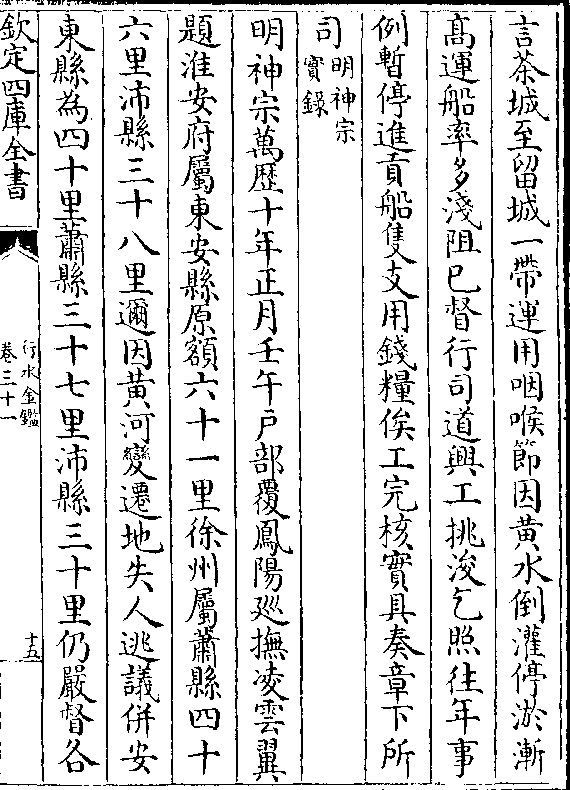 言茶城至留城一帶運用咽喉節因黄水倒灌停淤漸
髙運船率多淺阻已督行司道興工挑浚乞照往年事
例暫停進貢船隻支用錢糧俟工完核實具奏章下所
司明神宗
實録
明神宗萬歴十年正月壬午戸部覆鳳陽廵撫凌雲翼
題淮安府屬東安縣原額六十一里徐州屬蕭縣四十
六里沛縣三十八里邇因黄河變遷地失人逃議併安
東縣為四十里蕭縣三十七里沛縣三十里仍嚴督各
欽定四庫全書
行水金鑑
卷三十一
十五